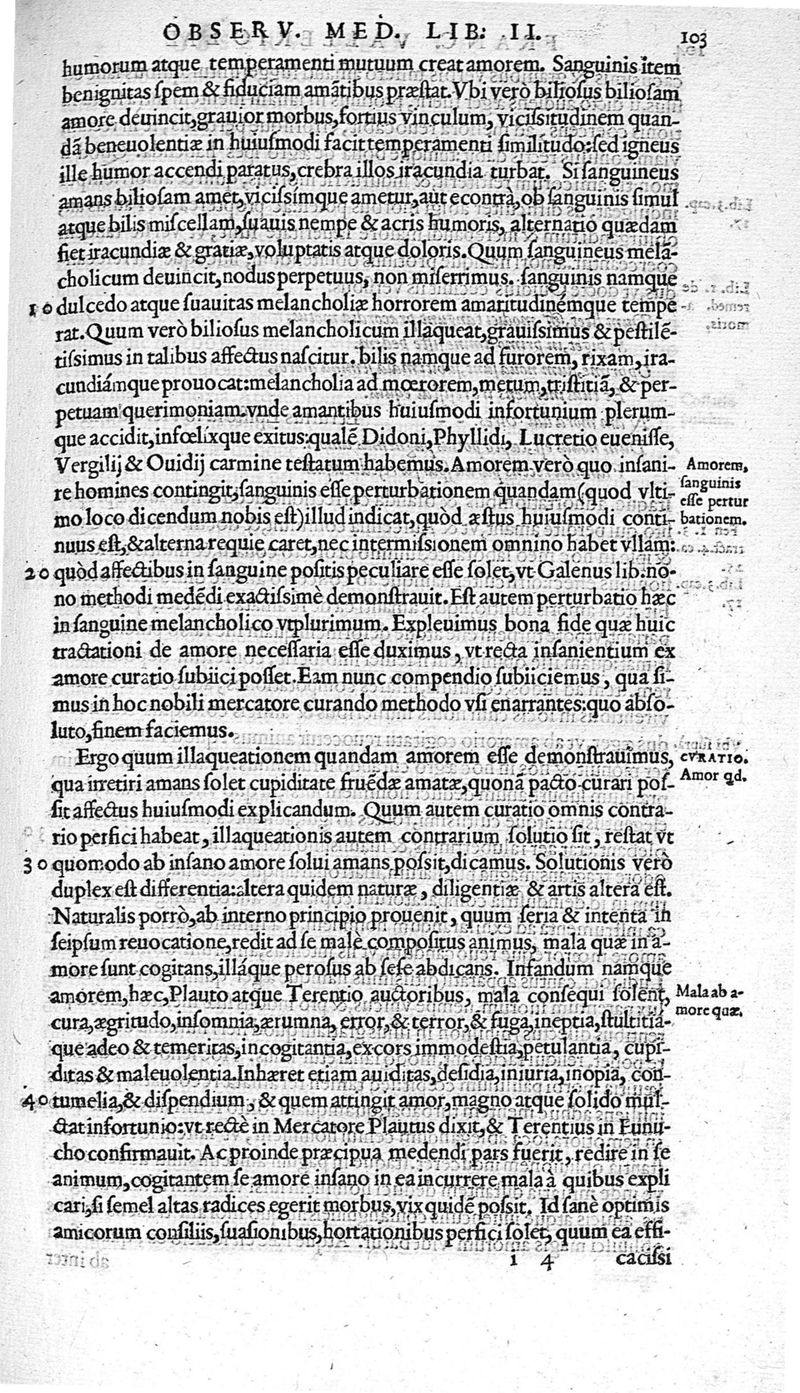 OBSERV. MED. LIB. II. 103
humorum atque temperamenti mutuum creat amorem. Sanguinis item
benignitas ſpem & fiduciam amãtibus præſtat. Vbi verò bilioſus bilioſam
amore deuincit, grauior morbus, fortius vinculum, viciſſitudinem quan-
dã beneuolentiæ in huiuſmodi facit temperamenti ſimilitudo: ſed igneus
ille humor accendi paratus, crebra illos iracundia turbat. Si ſanguineus
amans bilioſam amet, viciſſímque ametur, aut econtrà, ob ſanguinis ſimul
atque bilis miſcellam, ſuauis nempe & acris humoris, alternatio quædam
fiet iracundiæ & gratiæ, voluptatis atque doloris. Quum ſanguineus melã-
cholicum deuincit, nodus perpetuus, non miſerrimus. ſanguinis namque
10 dulcedo atque ſuauitas melancholiæ horrorem amaritudinémque tempe
rat. Quum verò bilioſus melancholicum illaqueat, grauiſſimus & peſtilẽ-
tiſſimus in talibus affectus naſcitur. bilis namque ad furorem, rixam, ira-
cundiámque prouocat: melancholia ad mœrorem, metum, triſtitiã, & per-
petuam querimoniam. vnde amantibus huiuſmodi infortunium plerum-
que accidit, infœlixque exitus: qualẽ Didoni, Phyllidi, Lucretio eueniſſe,
Vergilij & Ouidij carmine teſtatum habemus. Amorem verò quo inſani-
re homines contingit, ſanguinis eſſe perturbationem quandam (quod vlti-
mo loco dicendum nobis eſt) illud indicat, quòd æſtus huiuſmodi conti-
nuus eſt, & alterna requie caret, nec intermiſſionem omnino habet vllam:
20 quòd affectibus in ſanguine poſitis peculiare eſſe ſolet, vt Galenus lib. no-
no methodi medẽdi exactiſſimè demonſtrauit. Eſt autem perturbatio hæc
in ſanguine melancholico vtplurimum. Expleuimus bona fide quæ huic
tractationi de amore neceſſaria eſſe duximus, vt recta inſanientium ex
amore curatio ſubiici poſſet. Eam nunc compendio ſubiiciemus, qua ſi-
mus in hoc nobili mercatore curando methodo vſi enarrantes: quo abſo-
luto, finem faciemus.
Amorem,
ſanguinis
eſſe pertur
bationem.
Ergo quum illaqueationem quandam amorem eſſe demonſtrauimus,
qua irretiri amans ſolet cupiditate fruẽdæ amatæ, quonã pacto curari poſ-
ſit affectus huiuſmodi explicandum. Quum autem curatio omnis contra-
rio perfici habeat, illaqueationis autem contrarium ſolutio ſit, reſtat vt
30 quomodo ab inſano amore ſolui amans poſſit, dicamus. Solutionis verò
duplex eſt differentia: altera quidem naturæ, diligentiæ & artis altera eſt.
Naturalis porrò, ab interno principio prouenit, quum ſeria & intenta in
ſeipſum reuocatione, redit ad ſe malè compoſitus animus, mala quæ in a-
more ſunt cogitans, illáque peroſus ab ſeſe abdicans. Infandum namque
amorem, hæc, Plauto atque Terentio auctoribus, mala conſequi ſolent,
cura, ægritudo, inſomnia, ærumna, error, & terror, & fuga, ineptia, ſtultitiá-
que adeo & temeritas, incogitantia, excors immodeſtia, petulantia, cupi-
ditas & maleuolentia. Inhæret etiam auiditas, deſidia, iniuria, inopia, con-
40 tumelia, & diſpendium, & quem attingit amor, magno atque ſolido mul-
ctat infortunio: vt rectè in Mercatore Plautus dixit, & Terentius in Eunu-
cho confirmauit. Ac proinde præcipua medendi pars fuerit, redire in ſe
animum, cogitantem ſe amore inſano in ea incurrere mala à quibus expli
cari, ſi ſemel altas radices egerit morbus, vix quidẽ poſſit. Id ſanè optimis
amicorum conſiliis, ſuaſionibus, hortationibus perfici ſolet, quum ea effi-
CVRATIO.
Amor qd.
Mala ab a-
more quæ.
1 4 caciſſi